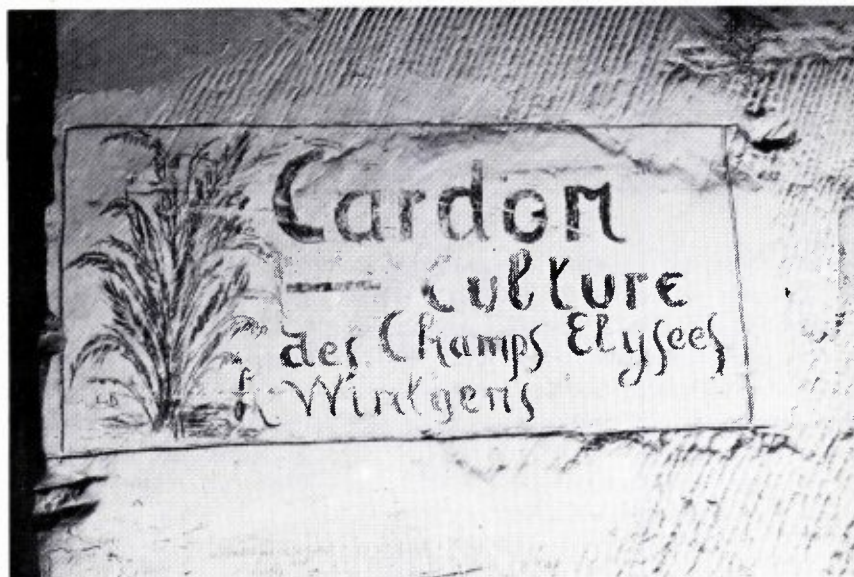 Cardon
— Culture
des Champs Elysees
Wintgens